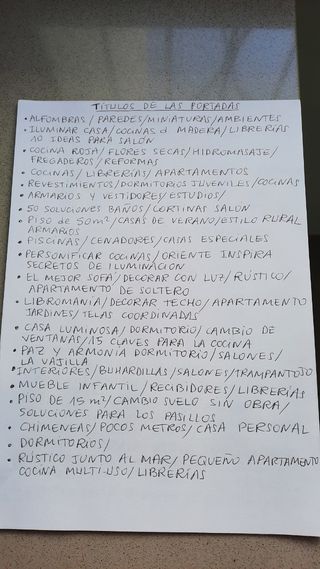 TÍTULOS DE LAS PORTADAS
• ALFOMBRAS / PAREDES/MINIATURAS/AMBIENTES
• ILUMINAR CASA/COCINAS d MADERA/LIBRERÍAS
10 IDEAS PARA SALÓN
• COCINA ROJA/FLORES SECAS/HIDROMASAJE/
FREGADEROS/REFORMAS
• COCINAS/LIBRERÍAS/APARTAMENTOS
• REVESTIMIENTOS/DORMITORIOS JUVENILES/COCINAS
• ARMARIOS Y VESTIDORES/ESTUDIOS/
• 50 SOLUCIONES BAÑOS/CORTINAS SALÓN
• PISO DE 50m²/CASAS DE VERANO/ESTILO RURAL
ARMARIOS
• PISCINAS/CENADORES/CASAS ESPECIALES
• PERSONIFICAR COCINAS/ORIENTE INSPIRA
SECRETOS DE ILUMINACIÓN
• EL MEJOR SOFÁ/DECORAR CON LUZ/RÚSTICO/
APARTAMENTO DE SOLTERO
• LIBROMANÍA/DECORAR TECHO/APARTAMENTO
JARDINES/TELAS COORDINADAS
• CASA LUMINOSA/DORMITORIO/CAMBIO DE
VENTANAS/15 CLAVES PARA LA COCINA
• PAZ Y ARMONÍA DORMITORIO/SALONES/
LA VAJILLA
• INTERIORES/BUHARDILLAS/SALONES/TRAMPANTOJO
• MUEBLE INFANTIL/RECIBIDORES/LIBRERÍAS
• PISO DE 15 m²/CAMBIO SUELO SIN OBRA/
SOLUCIONES PARA LOS PASILLOS
• CHIMENEAS/POCOS METROS/CASA PERSONAL
• DORMITORIOS/
• RÚSTICO JUNTO AL MAR/PEQUEÑO APARTAMENTO
COCINA MULTI-USO/LIBRERÍAS